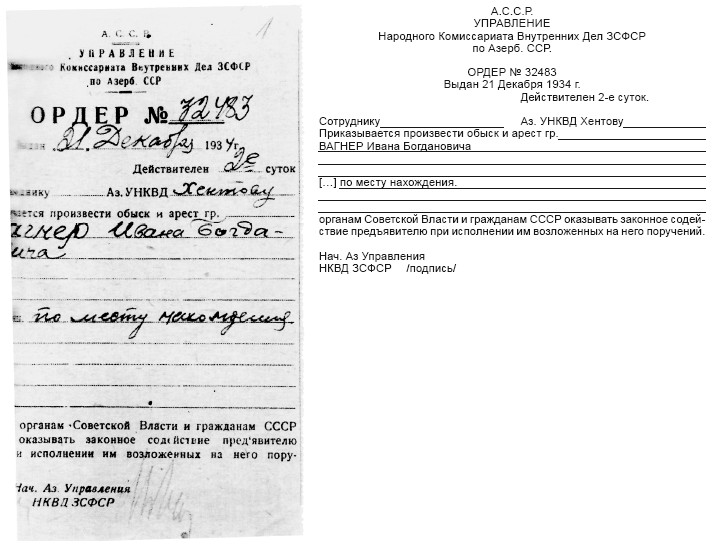 А. С. С. Р.
1
УПРАВЛЕНИЕ
Комиссариата Внутренних Дел ЗСФСР
по Азерб. ССР
ОРДЕР № 32483
21 Декабря 1934 г.
Действителен 2е суток
нику Аз. УНКВД Хентову
ается произвести обыск и арест гр.
агнер Ивана Богда-
вича
по месту нахождения
органам Советской Власти и гражданам СССР
оказывать законное содействие пред'явителю
и исполнении им возложенных на него пору-
Нач. Аз. Управления
НКВД ЗСФСР
А.С.С.Р.
УПРАВЛЕНИЕ
Народного Комиссариата Внутренних Дел ЗСФСР
по Азерб. ССР.
ОРДЕР № 32483
Выдан 21 Декабря 1934 г.
Действителен 2-е суток.
Сотруднику Аз. УНКВД Хентову
Приказывается произвести обыск и арест гр.
ВАГНЕР Ивана Богдановича
[…] по месту нахождения.
органам Советской Власти и гражданам СССР оказывать законное содей-
ствие предъявителю при исполнении им возложенных на него поручений.
Нач. Аз Управления
НКВД ЗСФСР /подпись/